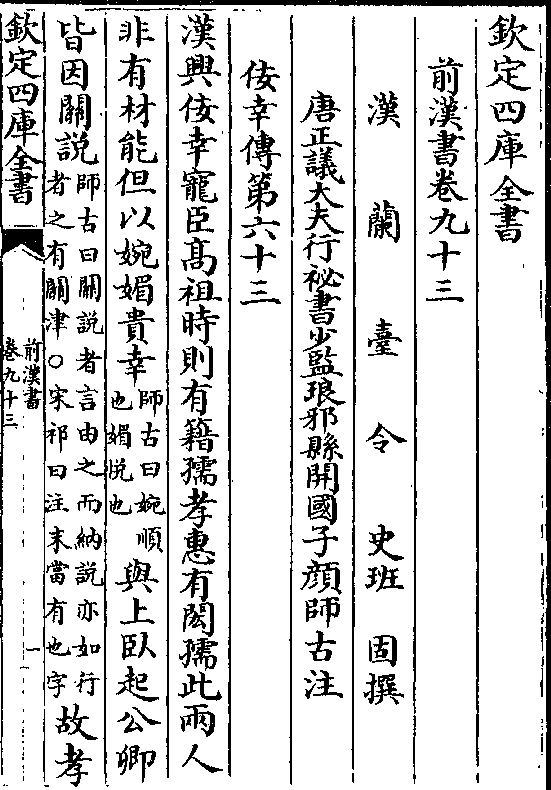 欽定四庫全書
前漢書卷九十三
漢蘭臺令史班固撰
唐正議大夫行祕書少監琅邪縣開國子顔師古注
佞幸傳第六十三
漢興佞幸寵臣髙祖時則有籍孺孝惠有閎孺此兩人
非有材能但以婉媚貴幸
師古曰婉順
也媚悦也
與上臥起公卿
皆因關説
師古曰關説者言由之而納説亦如行
者之有關津○宋祁曰注末當有也字
故孝
欽定四庫全書
前漢書
卷九十三
一